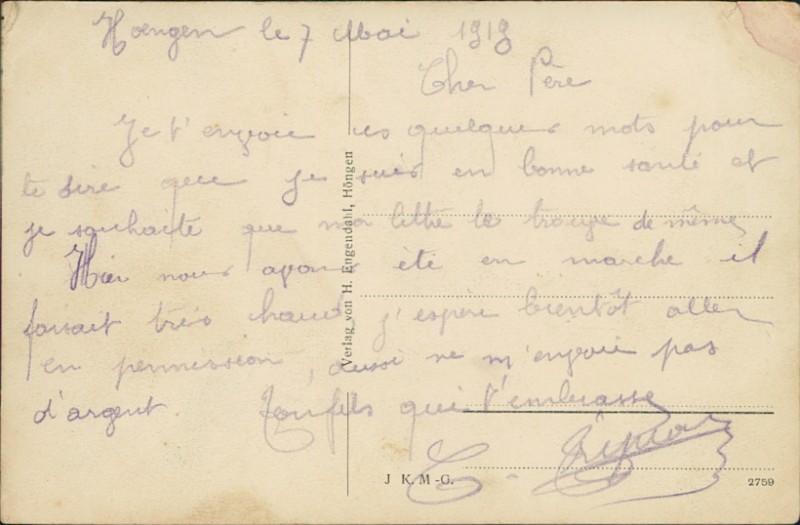 Hoengen le 7 Mai 1919
Cher Père
Je t'envoie ces quelques mots pour
te dire que je suis en bonne santé et
je souhaite que ma lettre te trouve de même
Hier nous avons été en marche il
faisait très chaud j'espère bientôt aller
en permission, aussi ne m'envoie pas
d'argent. Ton fils qui t'embrasse
Verlag von H. Engendahl, Höngen
J K. M.-G.
2759